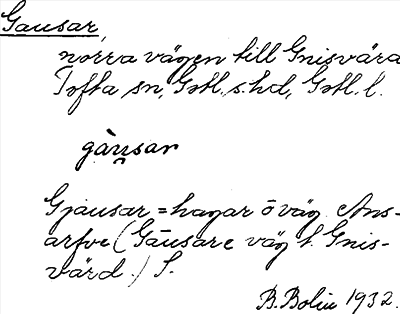 Gausar,
norra vägen till Gnisvära
Tofta sn, Gotl. s. hd, Gotl. l.
gàu̯sar
Gjausar = hagar ö väg Ans-
arfve (Gāusare väg t. Gnis-
värd.) S.
B. Bolin 1932.